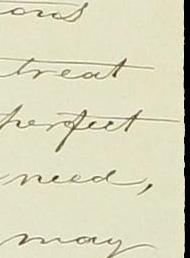 treat
perfect
need,
may